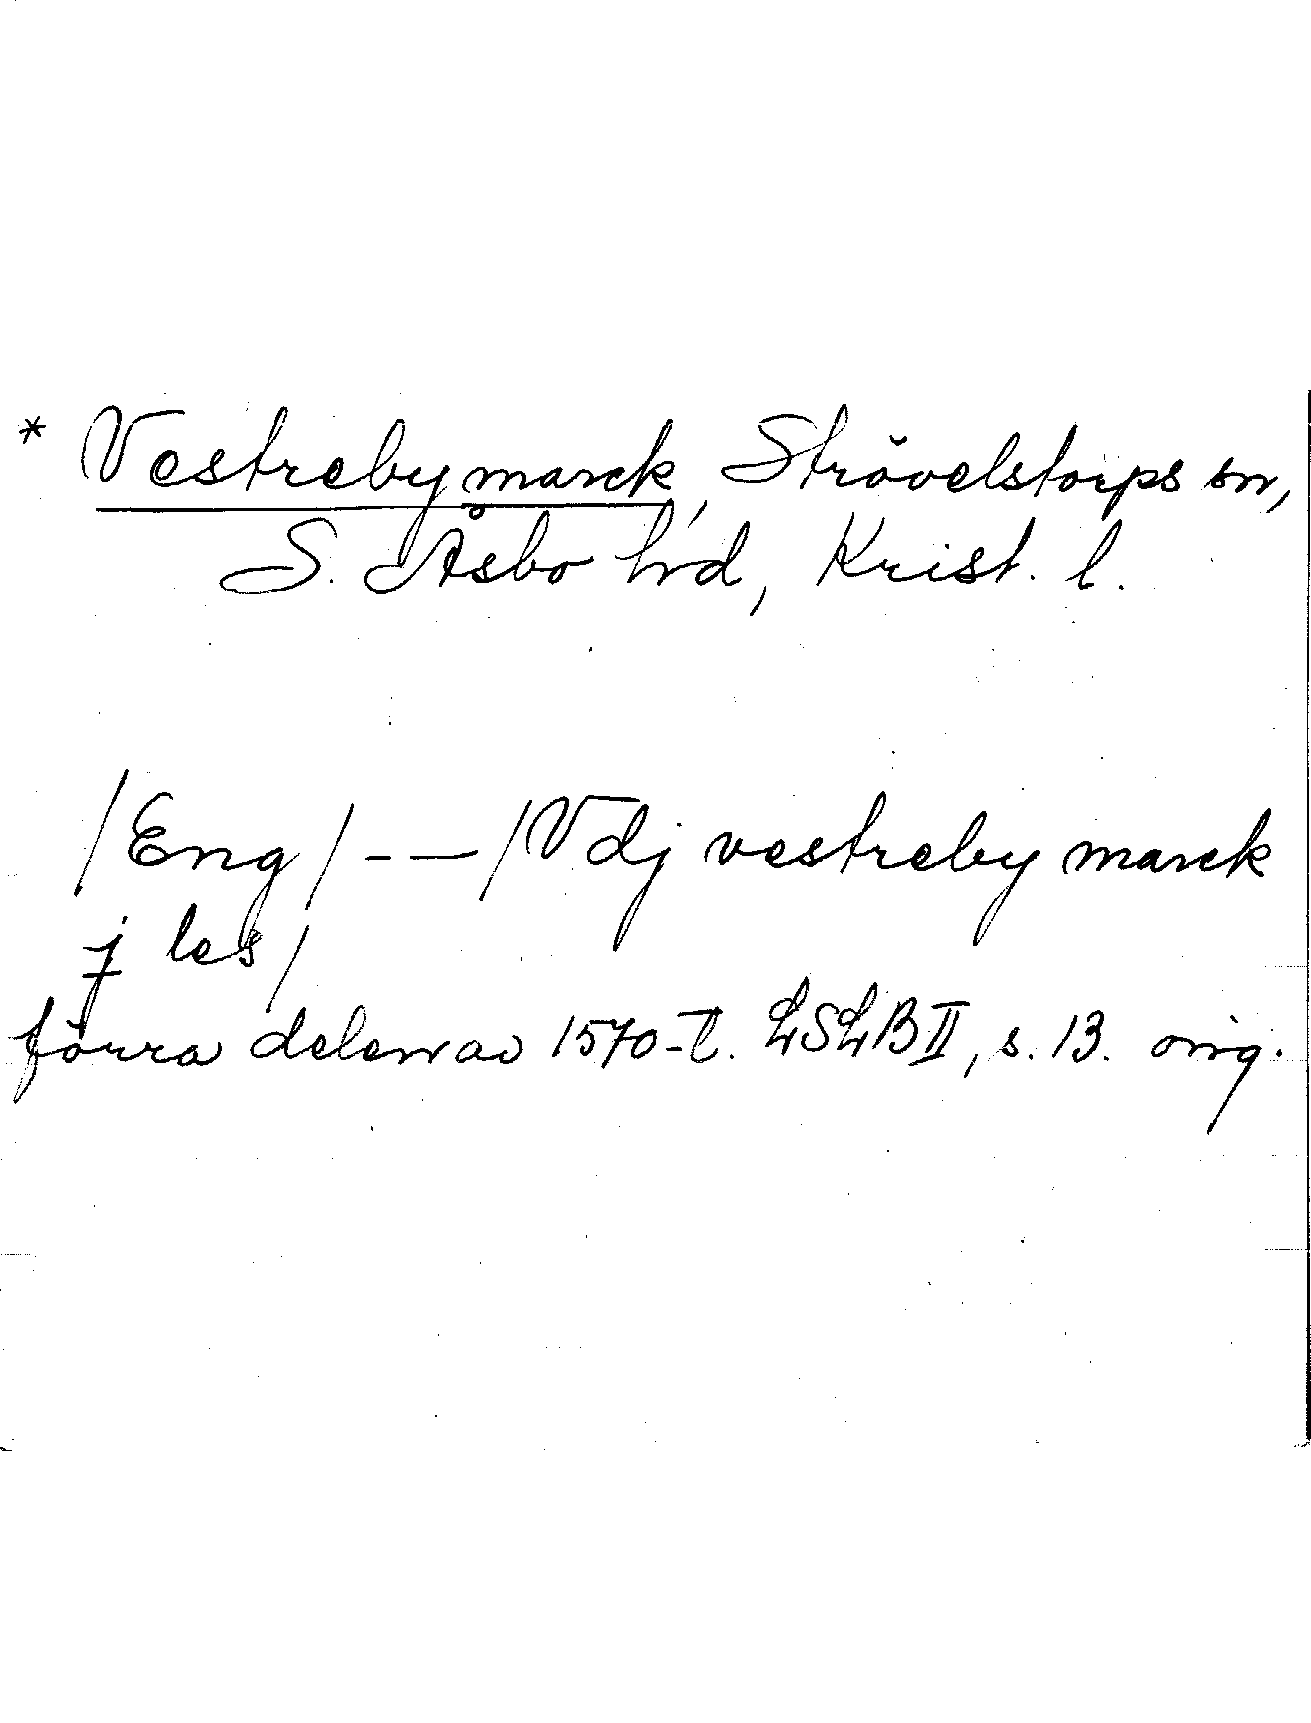 * Vestreby marck, Strövelstorps sn,
S. Åsbo hrd, Krist. l.
/Eng/ - — /Vdj vestreby marck
j les/
förra delen av 1570-t. LSLB II, s. 13. orig.